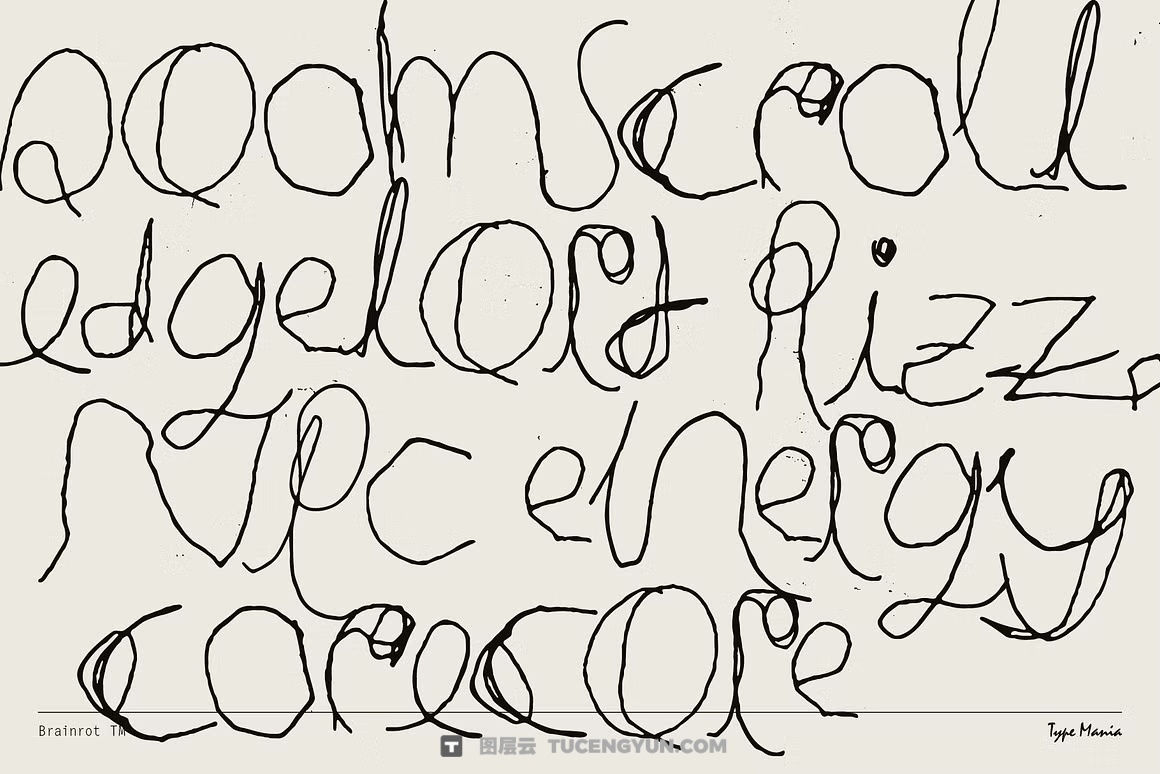 DoomScroll
edgelOrd Rizz
Npc energy
corecOre
Brainrot TM
Type Mania
T 图层云 TUCENGYUN.COM